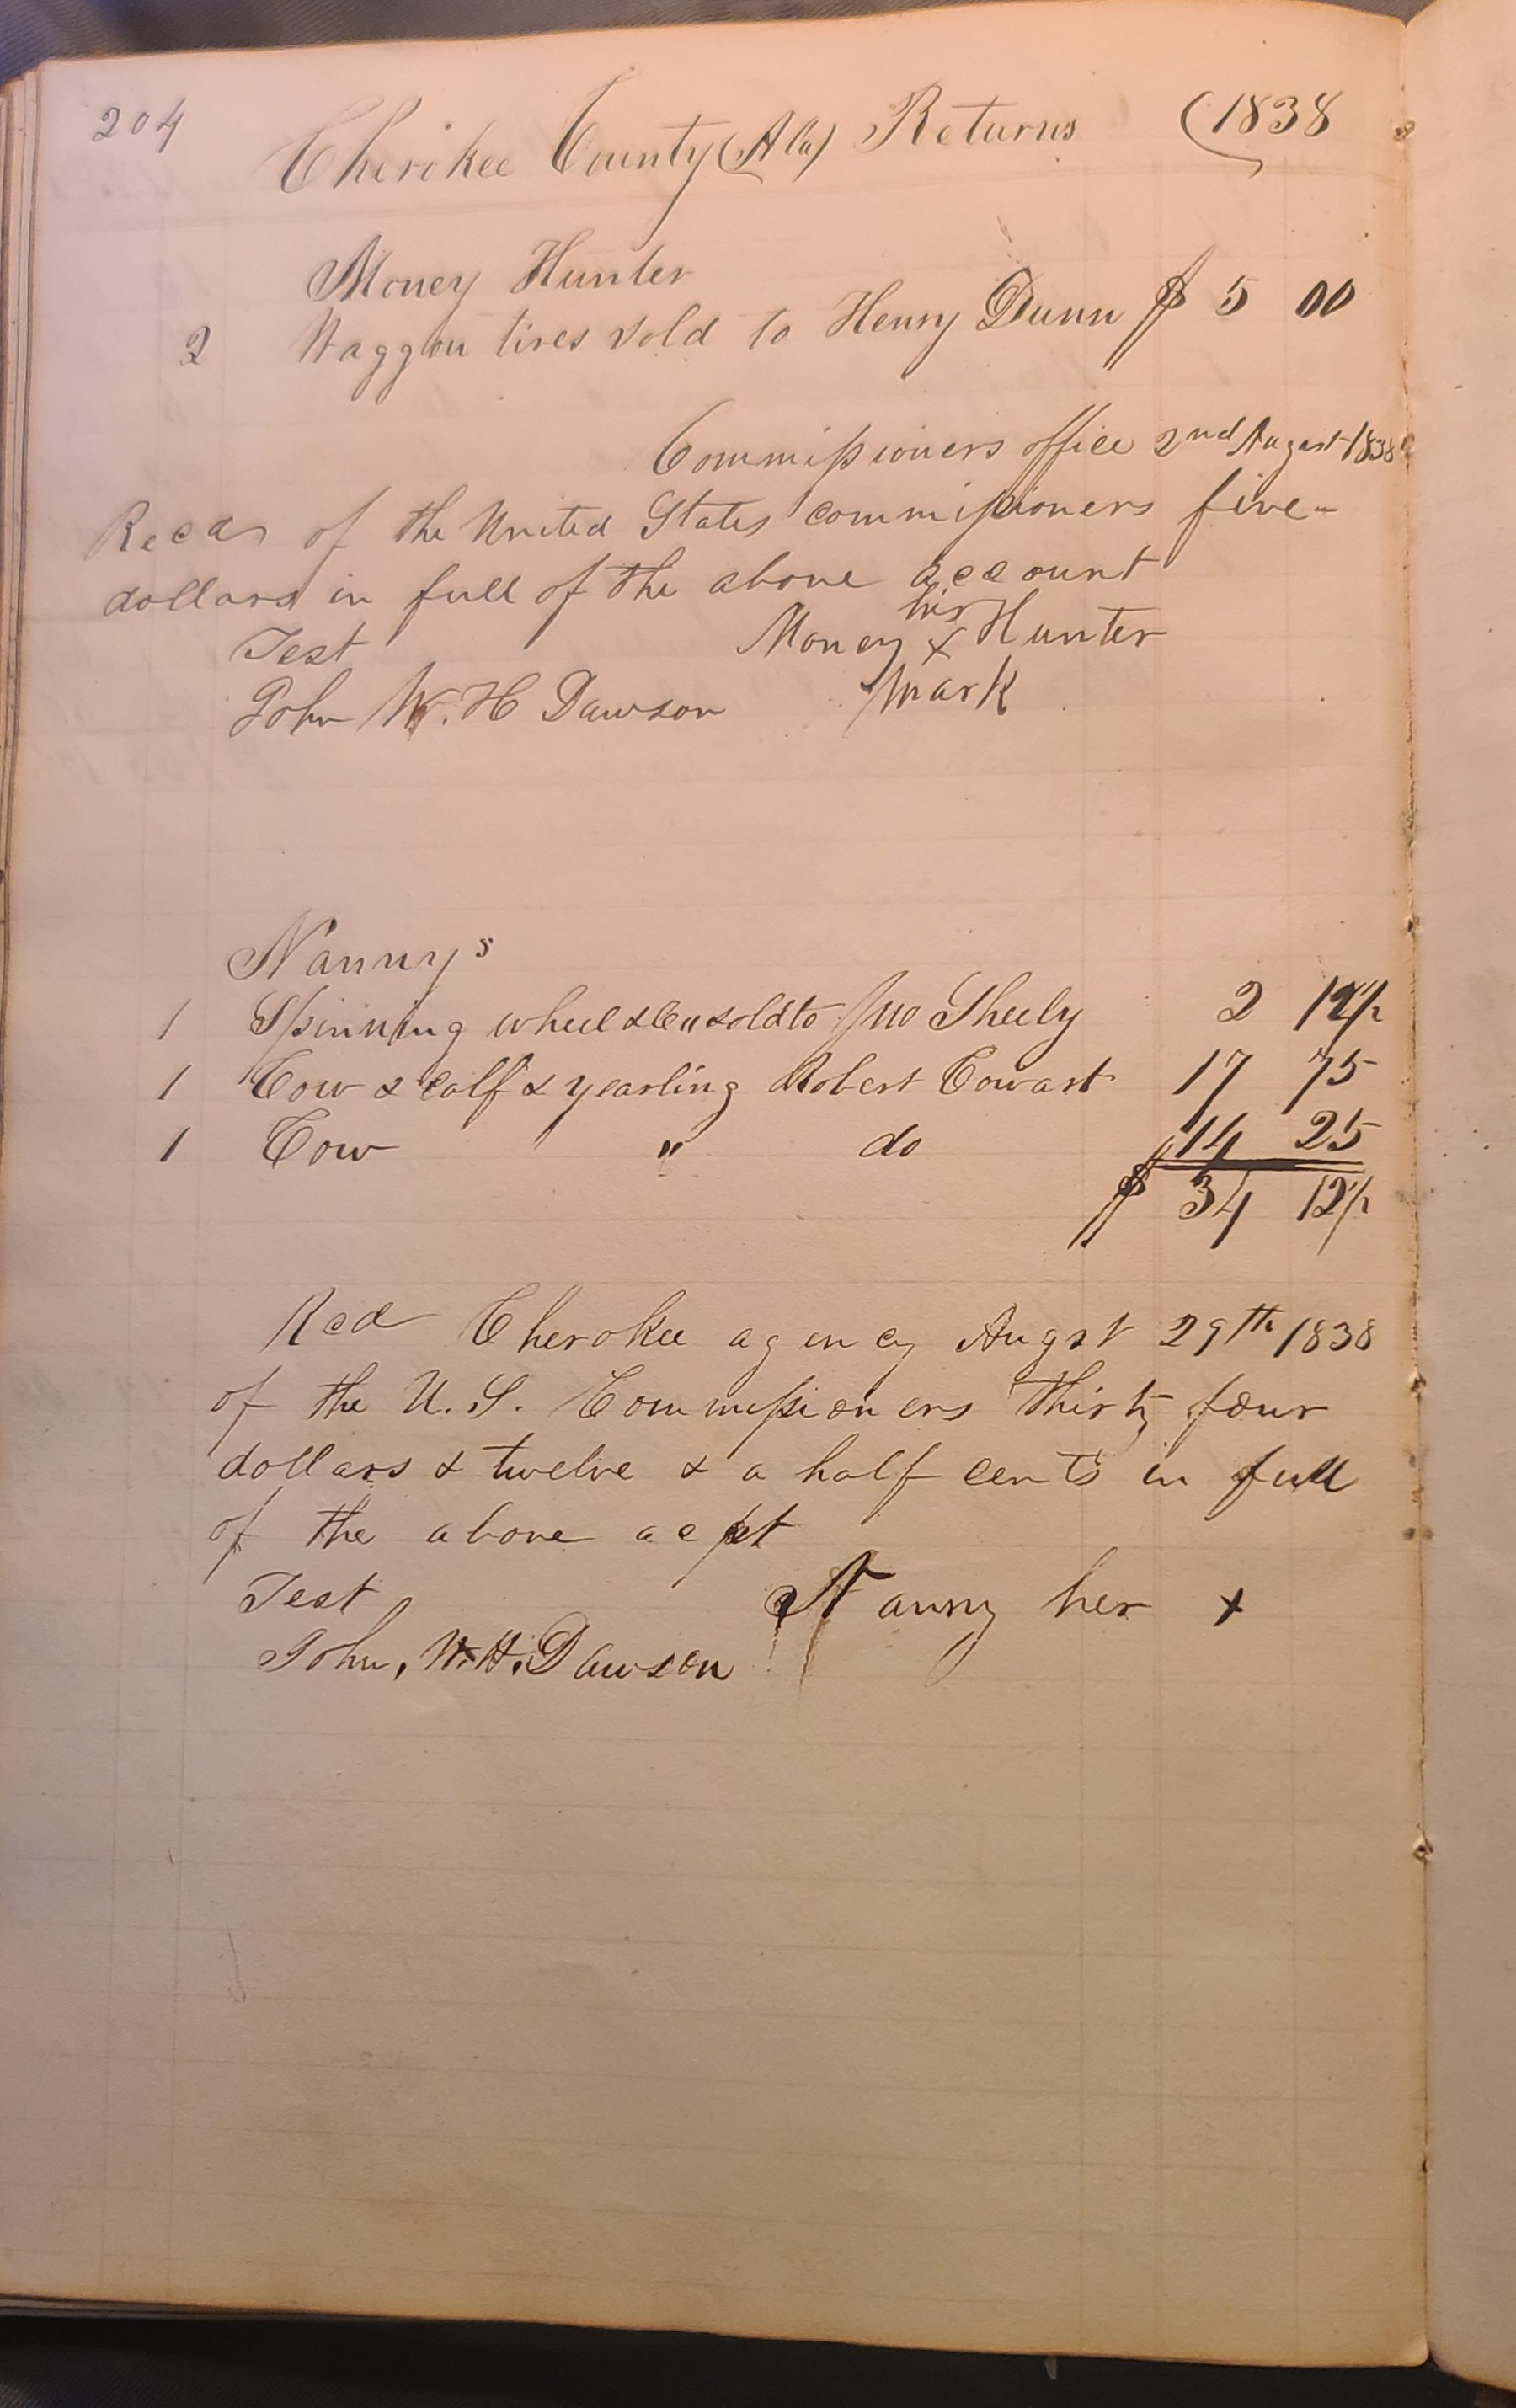 204 Cherikee County (Ala) Returns (1838
Money Hunter
2 Waggon tires sold to Henry Dunn $ 5 00
Commissioners office 2nd August 1838
Recd of the United States commissioners five
dollars in full of the above account
his
Test Money x Hunter
John W. H Dawson mark
Nannys
1 Spinning wheel &c " sold to Jno Sheely 2 12 1/2
1 Cow & calf & yearling Robert Cowart 17 75
1 Cow " do 14 25
$ 34 12 1/2
Recd Cherokee agency Augst 29th 1838
of the U. S. Commissioners thirty four
dollars & twelve & a half cents in full
of the above acpt
Test Nanny her x
John, W. H. Dawson